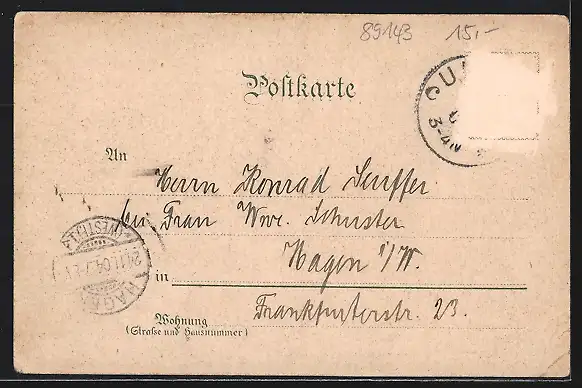 89143 15,-
Postkarte
CU
3-4N
An
Herrn Konrad Seuffer
bei Frau Wwe. Schuster
in Hagen i/W.
Wohnung
(Straße und Hausnummer)
Frankfurterstr. 23.
HAGEN
(WESTF.)
21.11.04.